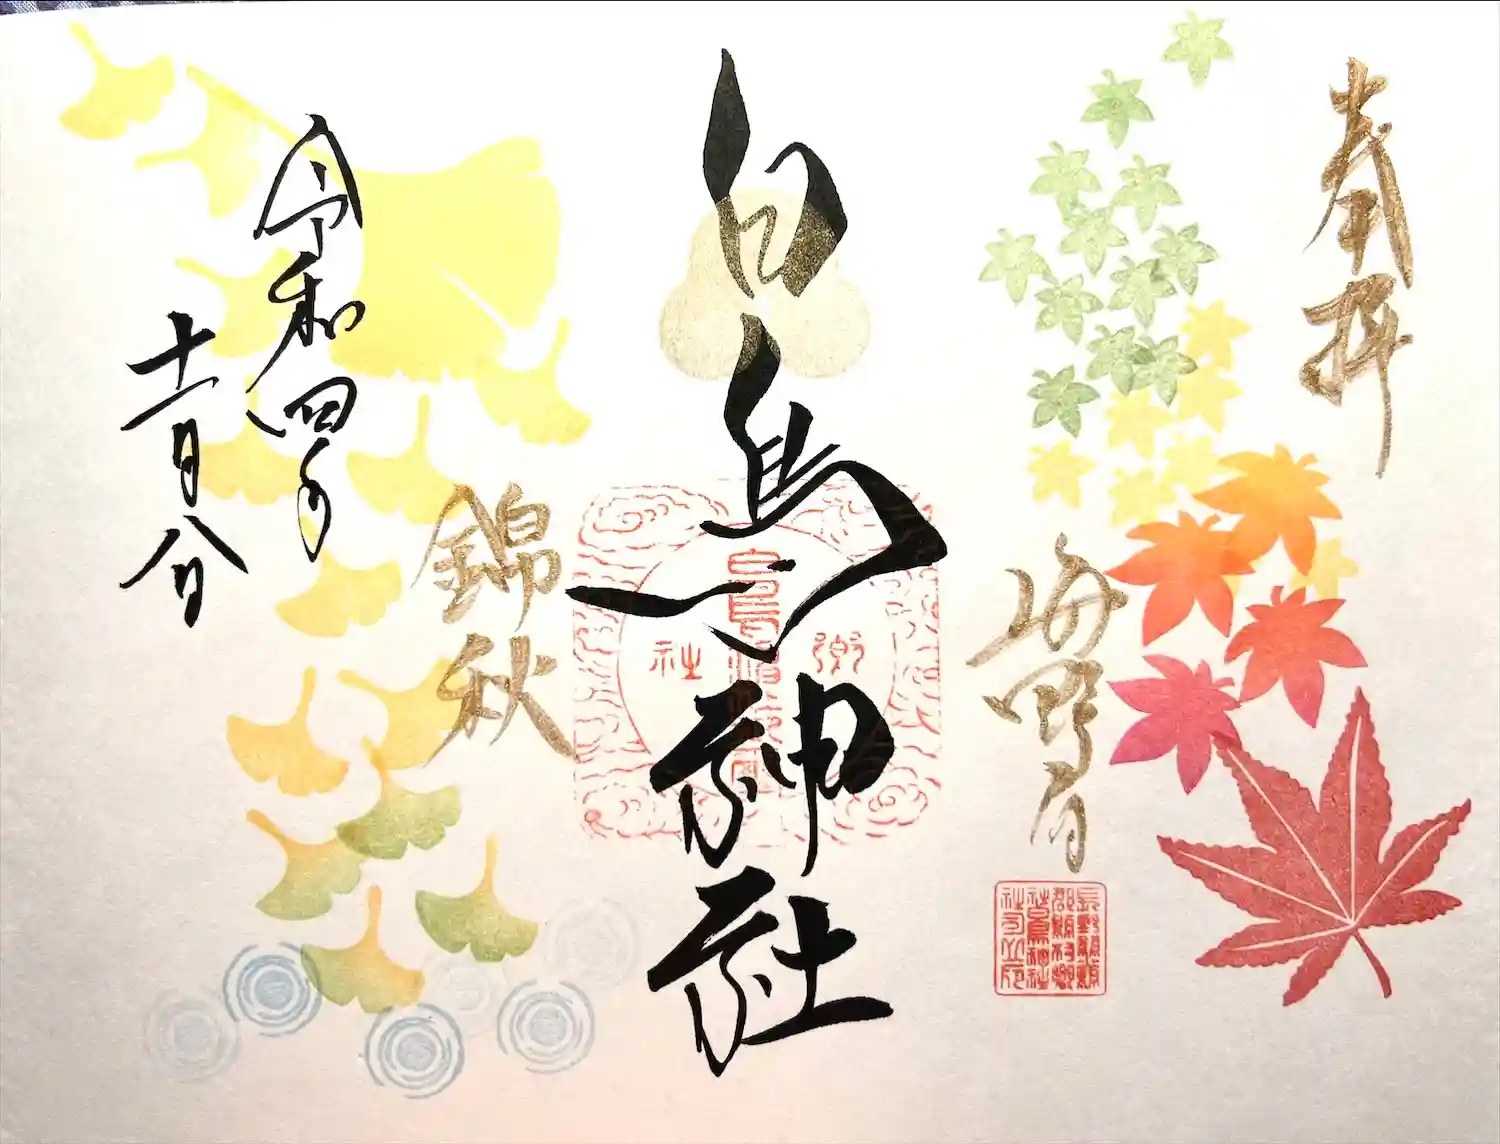 奉拝
海野宿
白鳥神社
錦秋
令和四年
十一月八日